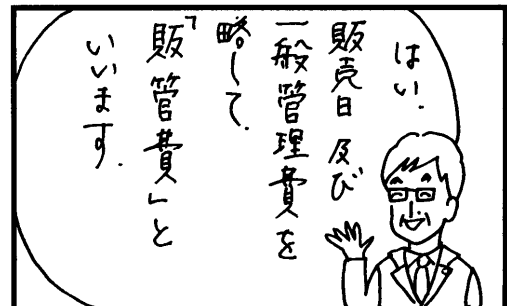 はい.
販売日 及び
一般管理費を
略して.
「販管費」と
いいます.